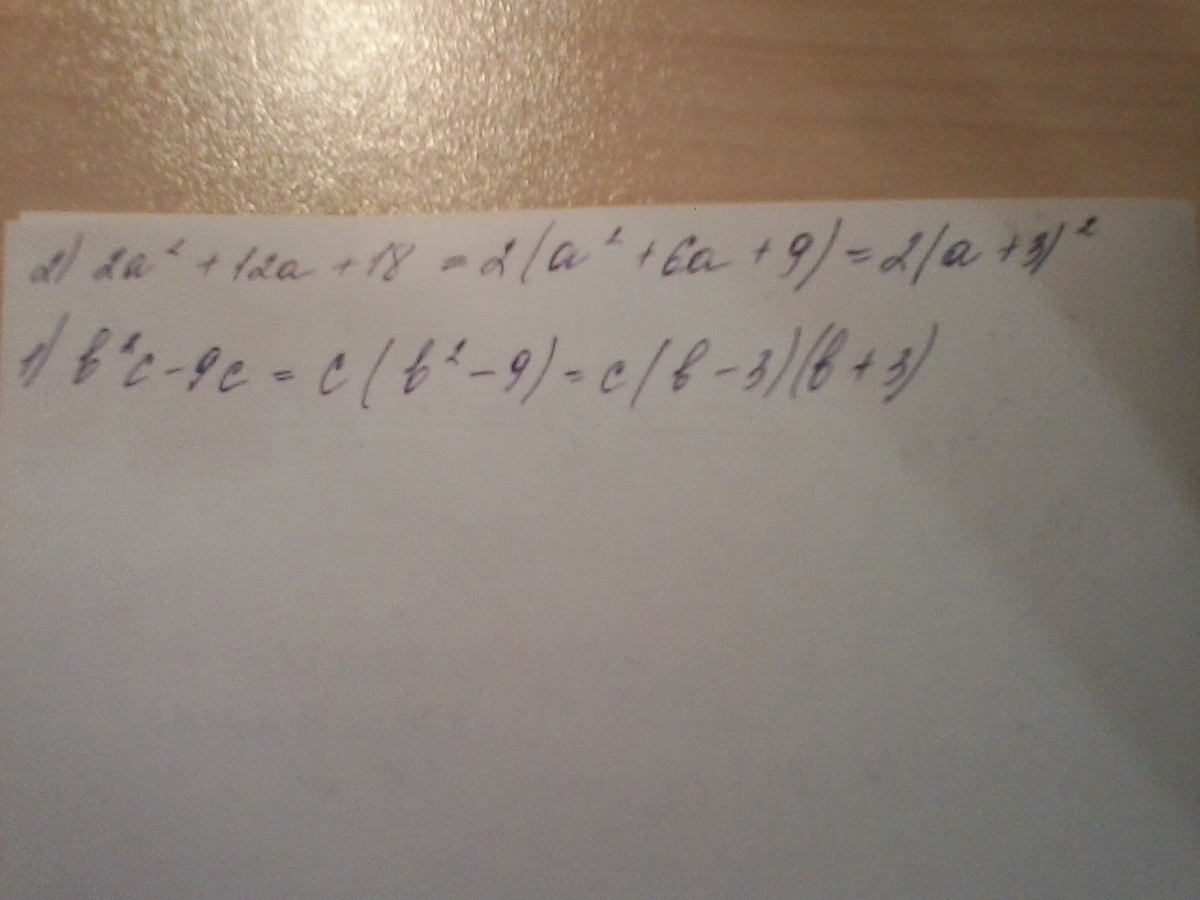 2) 2a² + 12a + 18 = 2(a² + 6a + 9) = 2(a + 3)²
1) b²c - 9c = c(b² - 9) = c(b - 3)(b + 3)